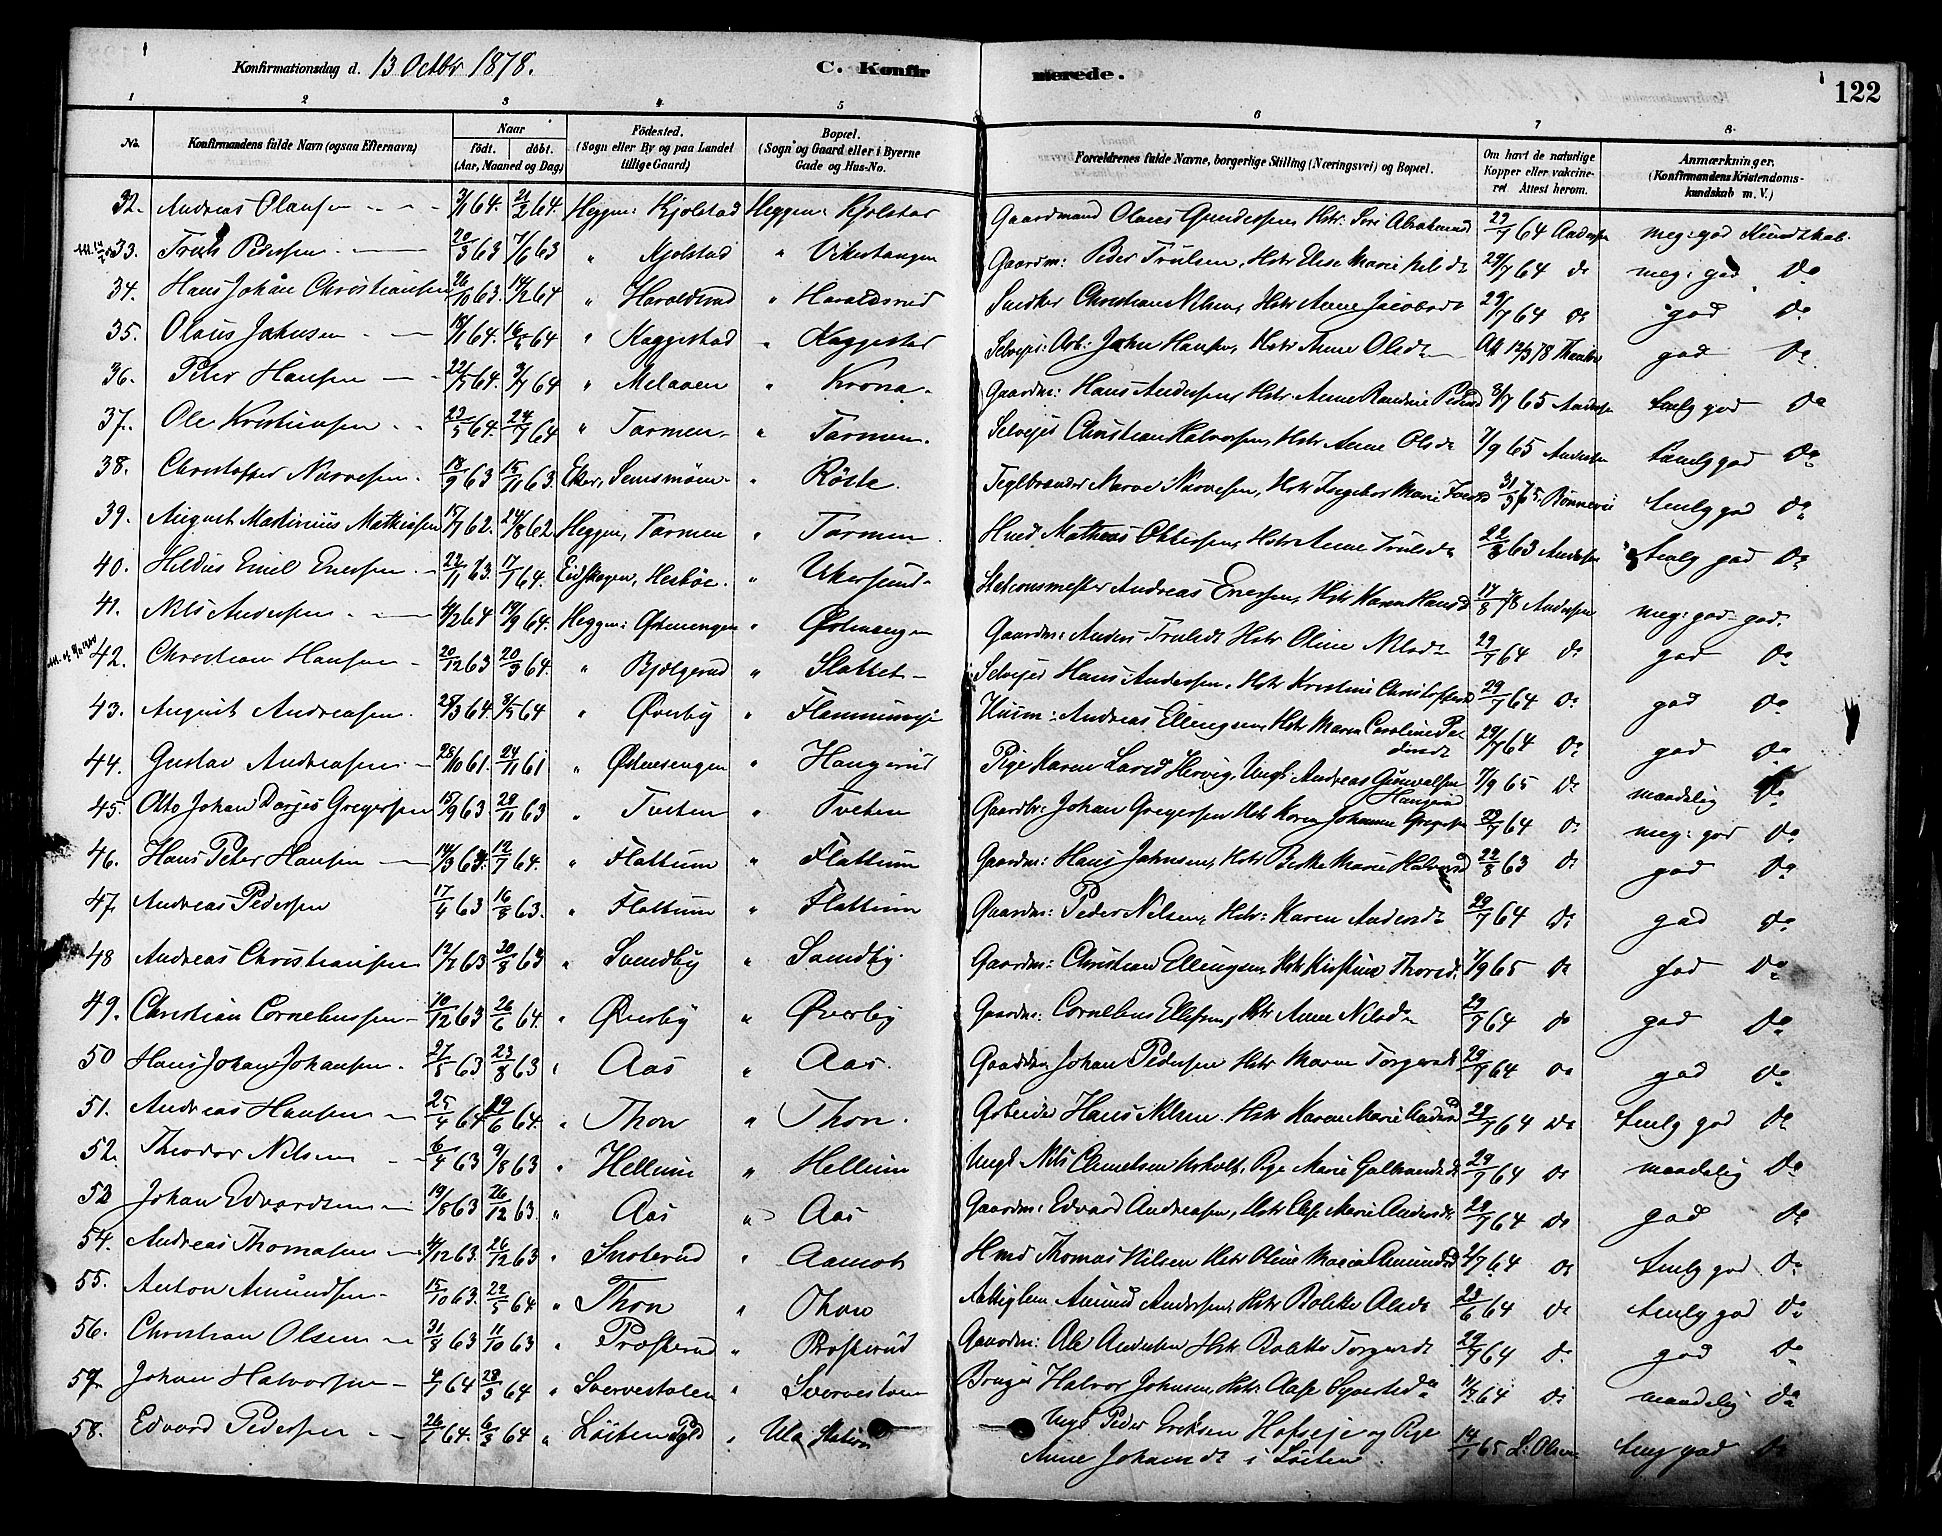 Konfirmationsdag d. 13 Octbr 1878. C. Konfirmerede. 122
1 2 3 4 5 6 7 8
No. Konfirmandens fulde Navn (ogsaa Efternavn) Naar født. døbt. (Aar, Maaned og Dag) Fødested. (Sogn eller By og paa Landet tillige Gaard) Bopæl. (Sogn og Gaard eller i Byerne Gade og Hus-No. Forældrenes fulde Navne, borgerlige Stilling (Næringsvei) og Bopæl. Om havt de naturlige Kopper eller vakcineret. Attest herom. Anmærkninger. (Konfirmandens Kristendomskundskab m. V.)
32. Andreas Olausen 3/1 64. 21/2 64. Heggen: Kjølstad Heggen: Kjølstad Gaardmand Olaus Gundersen, Hstr. 29/7 64 Andersen meg: god Kundskab.
33. Truls Pedersen 20/3 63 7/6 63 " Kjølstad " Vikertangen Gaardm: Peder Trulsen, Hstr Elise Marie 29/7 64 do meg: god Do
34. Hans Johan Christiansen 26/10 63. 14/2 64 " Haraldsrud " Haraldsrud Snedker Christian Nilsen, Hstr Anne Jacobsdt 29/7 64 do god Do
35. Olaus Johnsen 18/1 64. 16/5 64 " Kaggestad " Kaggestad Selvejer: Arb: John Hansen, Hstr Anne Olsdt god Do
36. Peter Hansen 22/5 64. 3/7 64 " Melaaen " Krona Gaardm: Hans Andersen, Hstr. Anne Randine Pedersd 3/7 65 Andersen temlg god Do
37. Ole Kristiansen 23/5 64. 24/7 64 " Tarmen " Tarmen. Selvejer Christian Halvorsen, Hstr Anne Olsdt 7/9 65 Andersen temlg god Do
38. Christoffer Narvesen. 18/9 63 15/11 63. Eker, Semsmoen " Røste. Teglbrænder Narve Narvesen, Hstr Ingebor Marie temlg god Do
39. August Martinius Mathiesen 15/7 62. 24/8 62 Heggen, Tarmen " Tarmen. Hmd Mathias Ottersen, Hstr Anne Trulsdt 22/8 63 Andersen temlg god Do
40. Hildus Emil Enersen. 22/11 63. 17/1 64. Eidskogen, " Vikersund Stationsmester Andreas Enersen, Hstr Karen Hansd 17/8 78 Andersen meg: god god.
41. Nils Andersen 4/2 64 19/9 64. Heggen: Østenengen " Østenengen Gaardm: Anders Trulsdt Hstr Oline Nilsdt 29/7 64 do god Do
42. Christian Hansen 20/12 63 20/3 64. " Bjølgerud " Slattet Selvejer Hans Andersen, Hstr Kristine Christoffersd 29/7 64 do god Do
43. August Andreasen. 28/3 64. 8/5 64 " Øverby " Husm: Andreas Ellingsen, Hstr Maren Caroline 29/7 64 do god Do
44. Gustav Andreasen 28/10 61. 24/11 61 " Østenengen " Haugerud Pige Karen Hervig, Ungk: Andreas Gunvaldsen Haugerud 7/9 65 do maadelig Do
45. Otto Johan Gregersen 15/9 63 29/11 63 " Tveten " Tveten Gaardbr: Johan Gregersen Hstr Karen Johanne 29/7 64 do meg: god Do
46. Hans Peter Hansen 14/3 63. 12/7 64. " Flattum " Flattum Gaardm: Hans Johnsen, Hstr Marie Halvorsd 22/8 63 do god Do
47. Andreas Pedersen 17/4 63 16/8 63. " Flattum " Flattum Gaardm: Peder Nilsen, Hstr: Karen Andersdt 29/7 64 do god Do
48 Andreas Christiansen 12/7 63 30/8 63 " Svendby " Svendby. Gaardm: Christian Ellingsen Hstr Kirstine Thorsd. 7/9 65 do god Do
49. Christian Corneliussen 10/12 63 26/6 64. " Øverby " Øverby Gaardm: Cornelius Ellefsen, Hstr Anne Nilsdt 29/7 64 do god Do
50 Hans Johan Johansen 27/5 63 23/8 63 " Aas " Aas. Johan Pedersen Hstr Maren Torgersdt 29/7 64 do god Do
51. Andreas Hansen 25/4 64 19/6 64. " Thon " Thon. Arbeider Hans Nilsen. Hstr Karen Marie Andersd 29/7 64 do temlg god Do
52. Theodor Nilsen 6/4 63 9/8 63 " Hellum " Hellum Ungk. Nils, Pige Marie Gulbrandsdt 29/7 64 do maadelig Do
53 Johan Edvardsen 19/8 63 26/12 63. " Aas " Aas Gaardm: Edvard Andreasen, Hstr Else Marie Andersdt. 29/7 64 do god Do
54. Andreas Thomasen 4/12 63. 26/12 63 " Snoterud " Aamodt Hmd Thomas Nilsen Hstr Oline Marie Amundsd 64 do temlg god Do
55. Anton Amundsen 15/10 63. 22/5 64 " Thon " Thon Amund Andersen, Hstr Bolette Olsdt 23/6 64 do temlg god Do
56. Christian Olsen 31/8 63 11/10 63 " Præsterud " Præsterud Gaardm: Ole Andersen Hstr Bolette Torgersdt 29/7 64 do god Do
57. Johan Halvorsen 4/1 64 28/3 64 " " Bruger Halvor Johnsen, Hstr: Aase 64 do maadelig Do
58. Edvard Pedersen 64. 6/3 64 " Løiten Pgld " Ula Station Ungk Peder Eriksen Hofseje og Pige
Anne Johansdt i Løiten. 14/7 65 L. Olsen temlg god Do